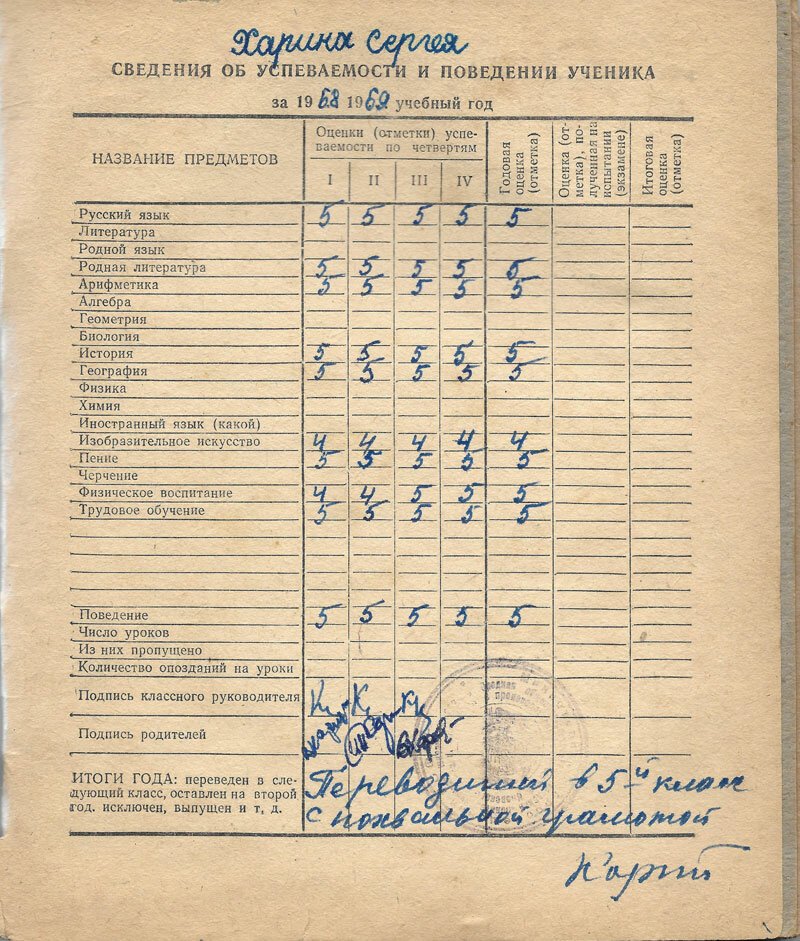 Харина Сергея
СВЕДЕНИЯ ОБ УСПЕВАЕМОСТИ И ПОВЕДЕНИИ УЧЕНИКА
за 1968 1969 учебный год
НАЗВАНИЕ ПРЕДМЕТОВ
Оценки (отметки) успе-
ваемости по четвертям
I II III IV
Годовая
оценка
(отметка)
Оценка (от-
метка), по-
лученная на
испытании
(экзамене)
Итоговая
оценка
(отметка)
Русский язык 5 5 5 5 5
Литература
Родной язык
Родная литература 5 5 5 5 5
Арифметика 5 5 5 5 5
Алгебра
Геометрия
Биология
История 5 5 5 5 5
География 5 5 5 5 5
Физика
Химия
Иностранный язык (какой)
Изобразительное искусство 4 4 4 4 4
Пение 5 5 5 5 5
Черчение
Физическое воспитание 4 4 5 5 5
Трудовое обучение 5 5 5 5 5
Поведение 5 5 5 5 5
Число уроков
Из них пропущено
Количество опозданий на уроки
Подпись классного руководителя
Подпись родителей
ИТОГИ ГОДА: переведен в сле-
дующий класс, оставлен на второй
год, исключен, выпущен и т, д.
в 5й класс
с похвальной грамотой